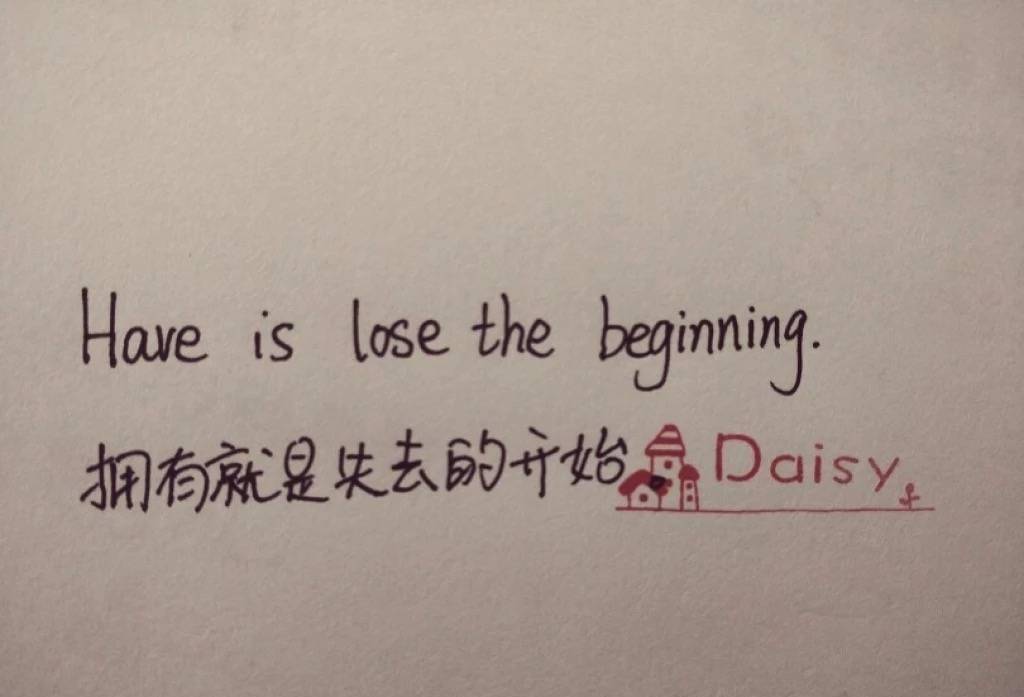 Have is lose the beginning.
拥有就是失去的开始 Daisy